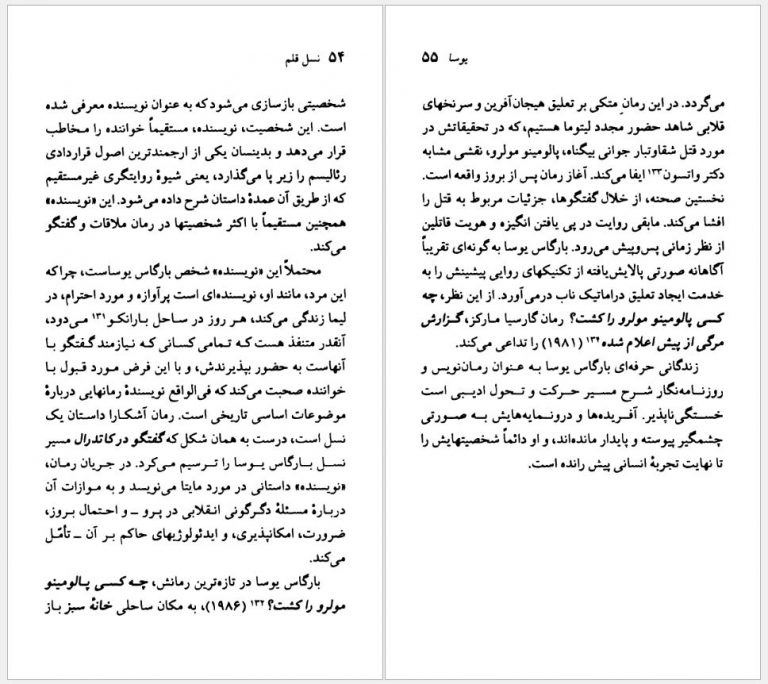 ۵۴ نسل قلم
شخصیتی بازسازی می‌شود که به عنوان نویسنده معرفی شده
است. این شخصیت، نویسنده، مستقیماً خواننده را مخاطب
قرار می‌دهد و بدینسان یکی از ارجمندترین اصول قراردادی
رئالیسم را زیر پا می‌گذارد، یعنی شیوهٔ روایتگری غیرمستقیم
که از طریق آن عمدهٔ داستان شرح داده می‌شود. این «نویسنده»
همچنین مستقیماً با اکثر شخصیتها در رمان ملاقات و گفتگو
می‌کند.
محتملاً این «نویسنده» شخص بارگاس یوساست، چراکه
این مرد، مانند او، نویسنده‌ای است پرآوازه و مورد احترام، در
لیما زندگی می‌کند، هر روز در ساحل بارانکو۱۳۱ می‌دود،
آنقدر متنفذ هست که تمامی کسانی که نیازمند گفتگو با
آنهاست به حضور بپذیرندش، و با این فرض مورد قبول با
خواننده صحبت می‌کند که فی‌الواقع نویسندهٔ رمانهایی دربارهٔ
موضوعات اساسی تاریخی است. رمان آشکارا داستان یک
نسل است، درست به همان شکل که گفتگو در کاتدرال مسیر
نسل بارگاس یوسا را ترسیم می‌کرد. در جریان رمان،
«نویسنده» داستانی در مورد مایتا می‌نویسد و به موازات آن
دربارهٔ مسئلهٔ دگرگونی انقلابی در پرو ــ و احتمال بروز،
ضرورت، امکانپذیری، و ایدئولوژیهای حاکم بر آن ــ تأمّل
می‌کند.
بارگاس یوسا در تازه‌ترین رمانش، چه کسی پالومینو
مولرو را کشت؟ ۱۳۲ (۱۹۸۶)، به مکان ساحلی خانهٔ سبز باز
یوسا ۵۵
می‌گردد. در این رمانِ متکی بر تعلیق هیجان‌آفرین و سرنخهای
قلابی شاهد حضور مجدد لیتوما هستیم، که در تحقیقاتش در
مورد قتل شقاوتبار جوانی بیگناه، پالومینو مولرو، نقشی مشابه
دکتر واتسون۱۳۳ ایفا می‌کند. آغاز رمان پس از بروز واقعه است.
نخستین صحنه، از خلال گفتگوها، جزئیات مربوط به قتل را
افشا می‌کند. مابقی روایت در پی یافتن انگیزه و هویت قاتلین
از نظر زمانی پس‌وپیش می‌رود. بارگاس یوسا به گونه‌ای تقریباً
آگاهانه صورتی پالایش‌یافته از تکنیکهای روایی پیشینش را به
خدمت ایجاد تعلیق دراماتیک ناب درمی‌آورد. از این نظر، چه
کسی پالومینو مولرو را کشت؟ رمان گارسیا مارکز، گزارش
مرگی از پیش اعلام شده ۱۳۴ (۱۹۸۱) را تداعی می‌کند.
زندگانی حرفه‌ای بارگاس یوسا به عنوان رمان‌نویس و
روزنامه‌نگار شرح مسیر حرکت و تحول ادیبی است
خستگی‌ناپذیر. آفریده‌ها و درونمایه‌هایش به صورتی
چشمگیر پیوسته و پایدار مانده‌اند، و او دائماً شخصیتهایش را
تا نهایت تجربهٔ انسانی پیش رانده است.